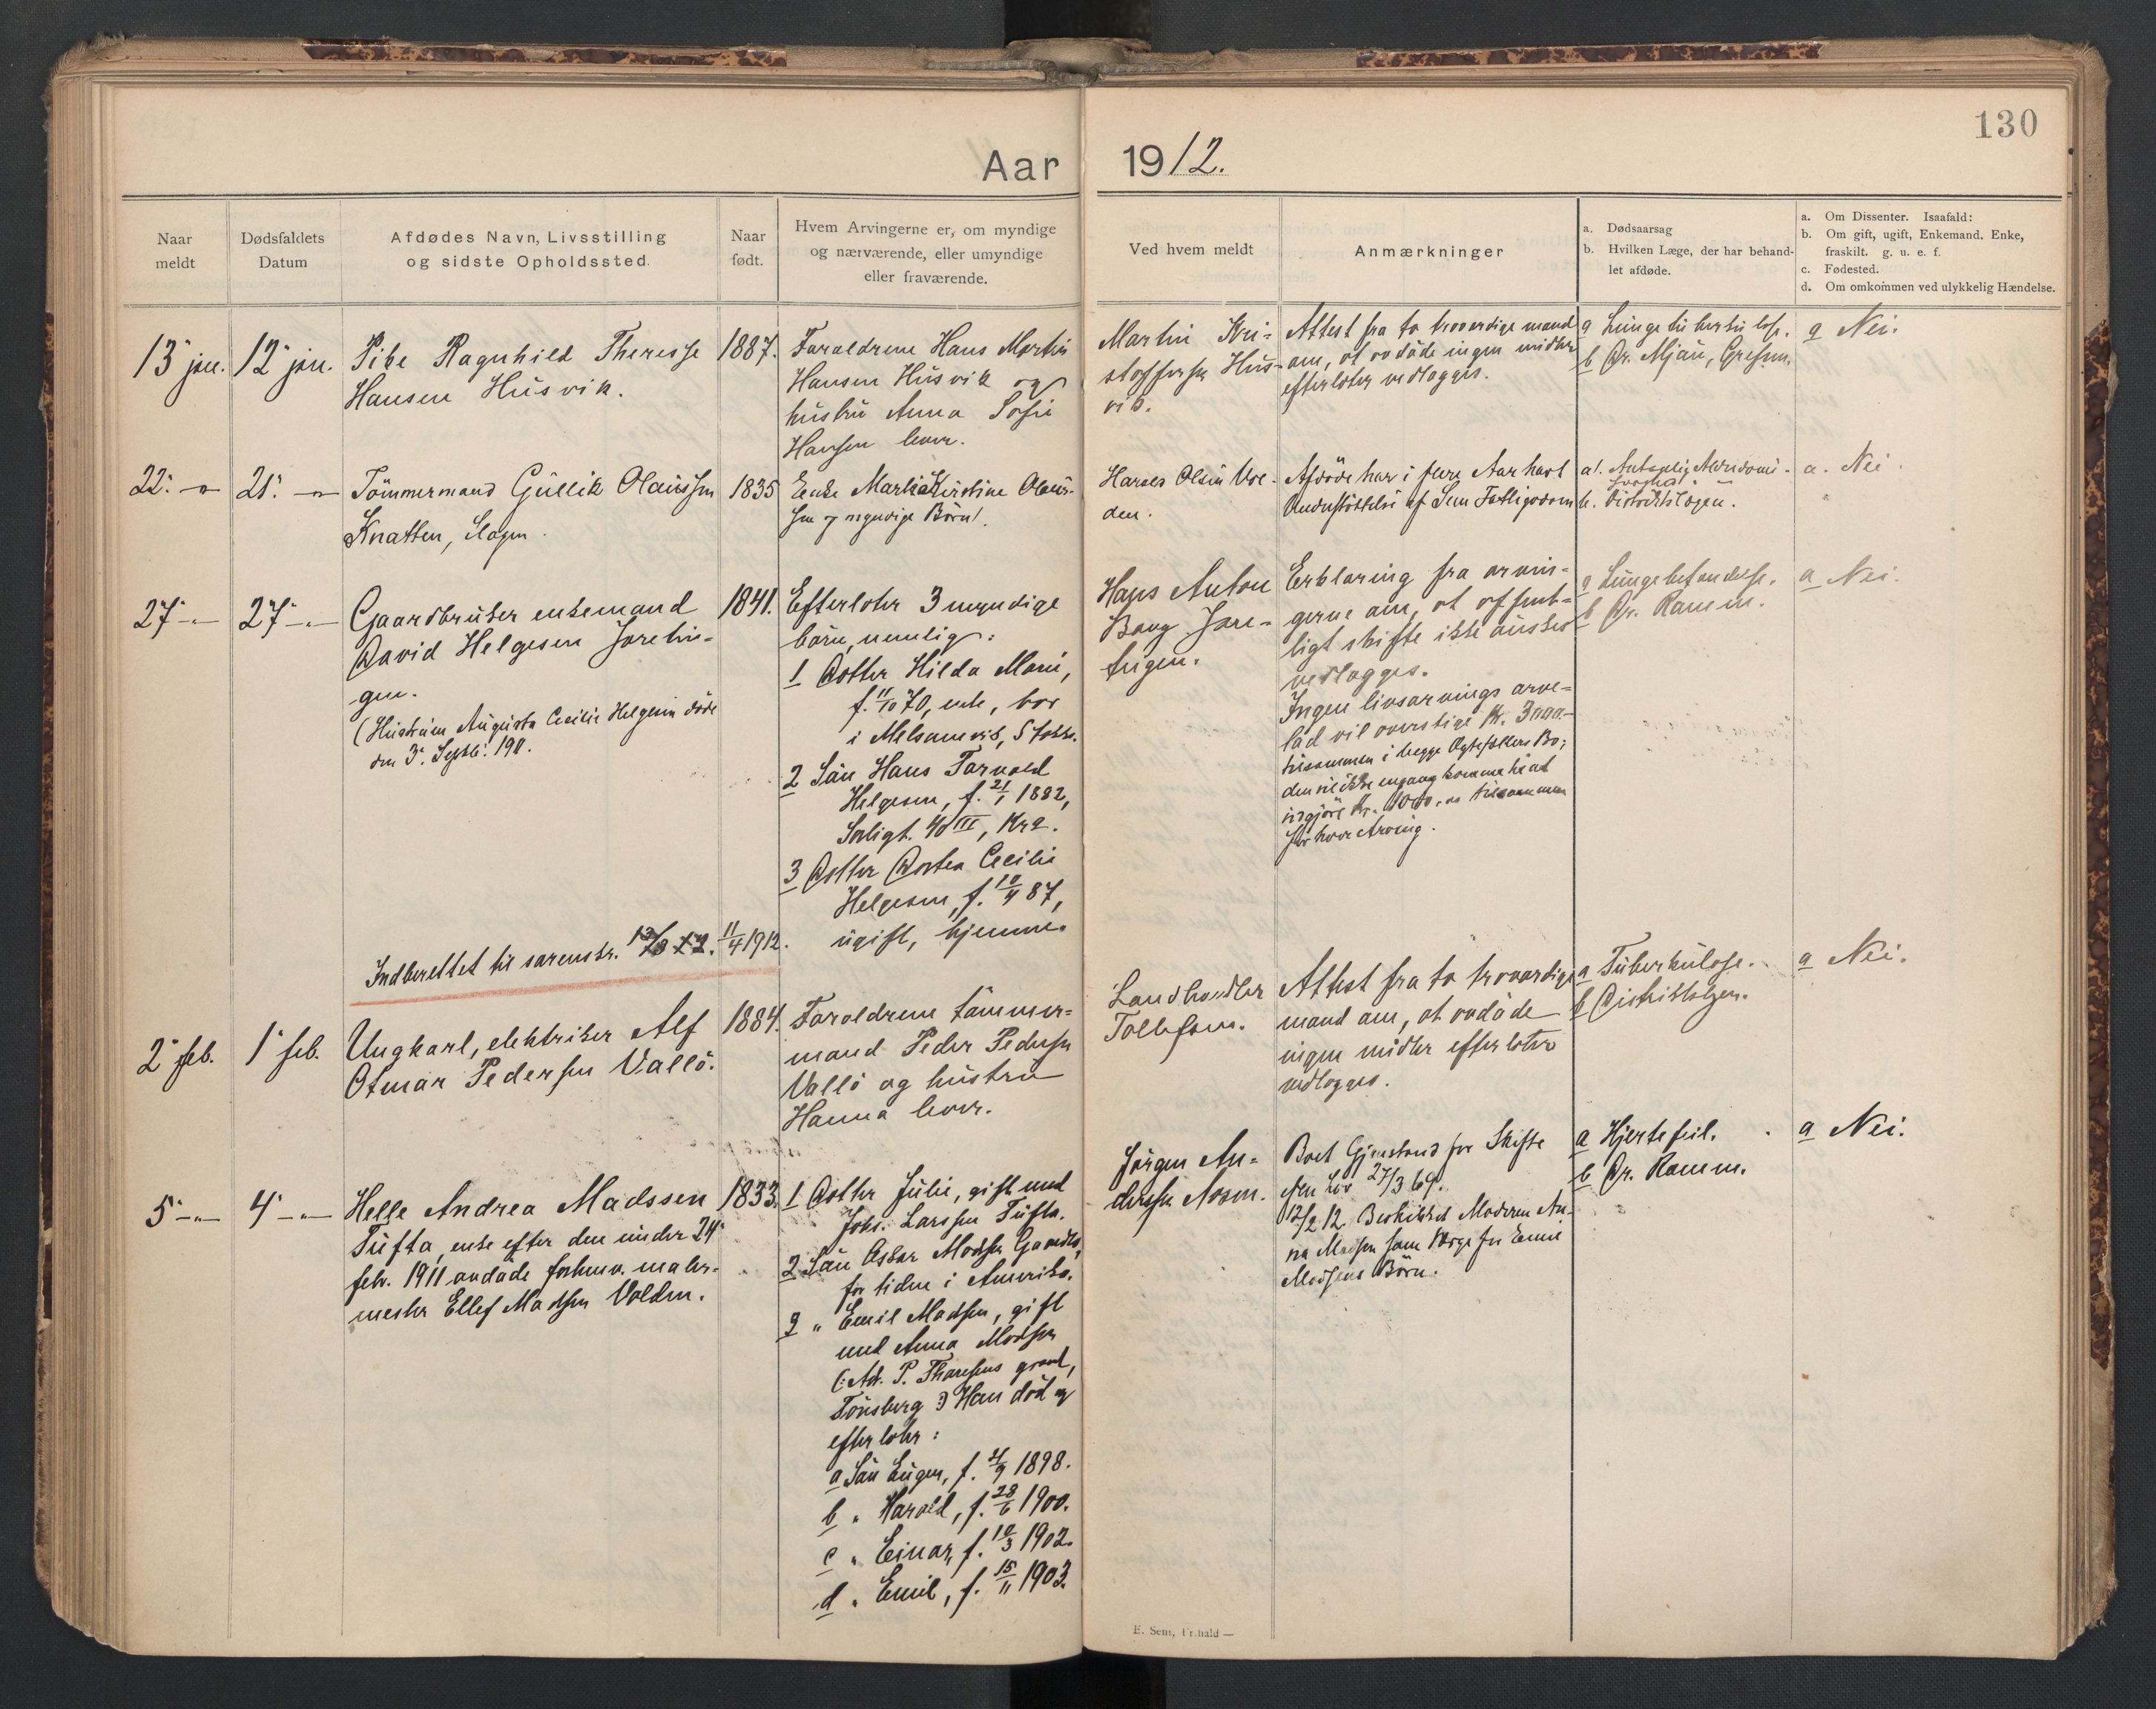 130
Aar 1912.
Naar meldt
Dødsfaldets Datum
Afdødes Navn, Livsstilling og sidste Opholdssted.
Naar født.
Hvem Arvingerne er, om myndige og nærværende, eller umyndige eller fraværende.
Ved hvem meldt
Anmærkninger
a. Dødsaarsag
b. Hvilken Læge, der har behandlet afdøde.
a. Om Dissenter. Isaafald:
b. Om gift, ugift, Enkemand, Enke, fraskilt. g. u. e. f.
c. Fødested.
d. Om omkommen ved ulykkelig Hændelse.
13 jan.
12 jan.
Pike Ragnhild Theresse
Hansen Húsvik.
1887.
Foraldrene Hans Martin
Hansen Húsvik og
hústrú Anna Sofie
Hansen lever.
Martin Kri-
stoffersen Hús-
vik.
Attest fra to troverdige mænd
om, at avdöde ingen midler
efterlater vedlægges.
a Lúngetúberkúlose.
b Dr. Mjaú,
a Nei.
22. -"-
21. -"-
Tömmermand Gúllik Olaússen
Knatten, Slagen.
1835
Enke Maria Kirstine Olaús-
sen og myndige Börn.
Olsen Vol-
den.
Afdöde har i flere Aar havt
Understöttelse af Sem Fattigvæsen
a. Antagelig Alderdoms-
b. Distriktslægen.
a. Nei.
27 -"-
27 -"-
Gaardbrúker enkemand
David Helgesen Jaretin-
gen.
(Hústrúen Augusta Cecilie Helgesen döde
den 3. Septbr. 191.
1841.
Efterlater 3 myndige
börn, nemlig:
1 Datter Hilda Marie,
f. 11/10 70, enke, bor
i Melsomvik, Stokke.
2 Sön Hans Torvald
Helgesen, f. 21/1 1882,
40 III, Kra.
3 Datter Dortea Cecilie
Helgesen, f. 10/4 87,
úgift, hjemme.
Hans Anton
Bang Jare-
tingen.
Erklæring fra arvin-
gerne om, at offent-
ligt skifte ikke önskes
vedlægges.
Ingen livsarvings arve-
lod vil overstige Kr. 3000.-
tilsammen i begge Ægtefællers Bo;
den vil ikke engang komme til at
údgjöre Kr. 1000,00 tilsammen
for hver Arving.
a Lúngebetændelse.
b Dr. Ramm.
a Nei.
Indberettet til sorenskr. 13/3 12. 11/4 1912.
2 feb.
1 feb.
Ungkarl, elektriker Alf
Otmar Pedersen Vallö.
1884.
Foraldrene tömmer-
mand Peder Pedersen
Vallö og hústrú
Hanna lever.
Landhandler
Tollefsen.
Attest fra to troværdige
mænd om, at avdöde
ingen midler efterlater
vedlægges.
a Túberkúlose.
b Distriktslægen.
a Nei.
5 -"-
4 -"-
Helle Andrea Madssen
Túfta, enke efter den únder 24
feb. 1911 avdöde forhenv. maler-
mester Ellef Madsen Volden.
1833.
1 Datter Júlie, gift med
Johs. Larssen Túfta.
2 Sön Oskar Madsen
for tiden i Amerika.
3 " Emil Madsen, gift
med Anna Madsen
(: Adr. P. Thoresens graat,
Tönsberg :) Han död og
efterlater:
a Sön Eúgen, f. 4/9 1898.
b " Harald, f. 28/6 1900.
c " Einar, f. 10/3 1902.
d " Emil, f. 15/11 1903.
Jörgen An-
dersen Aasen.
Boet Gjenstand for Skifte
efter Lov 27/3 69.
12/2 12. Beskikket Moderen An-
na Madsen som Værge for Emil
Madsens Börn.
a Hjertefeil.
b Dr. Ramm.
a Nei.
E. Sem, Fr.hald —